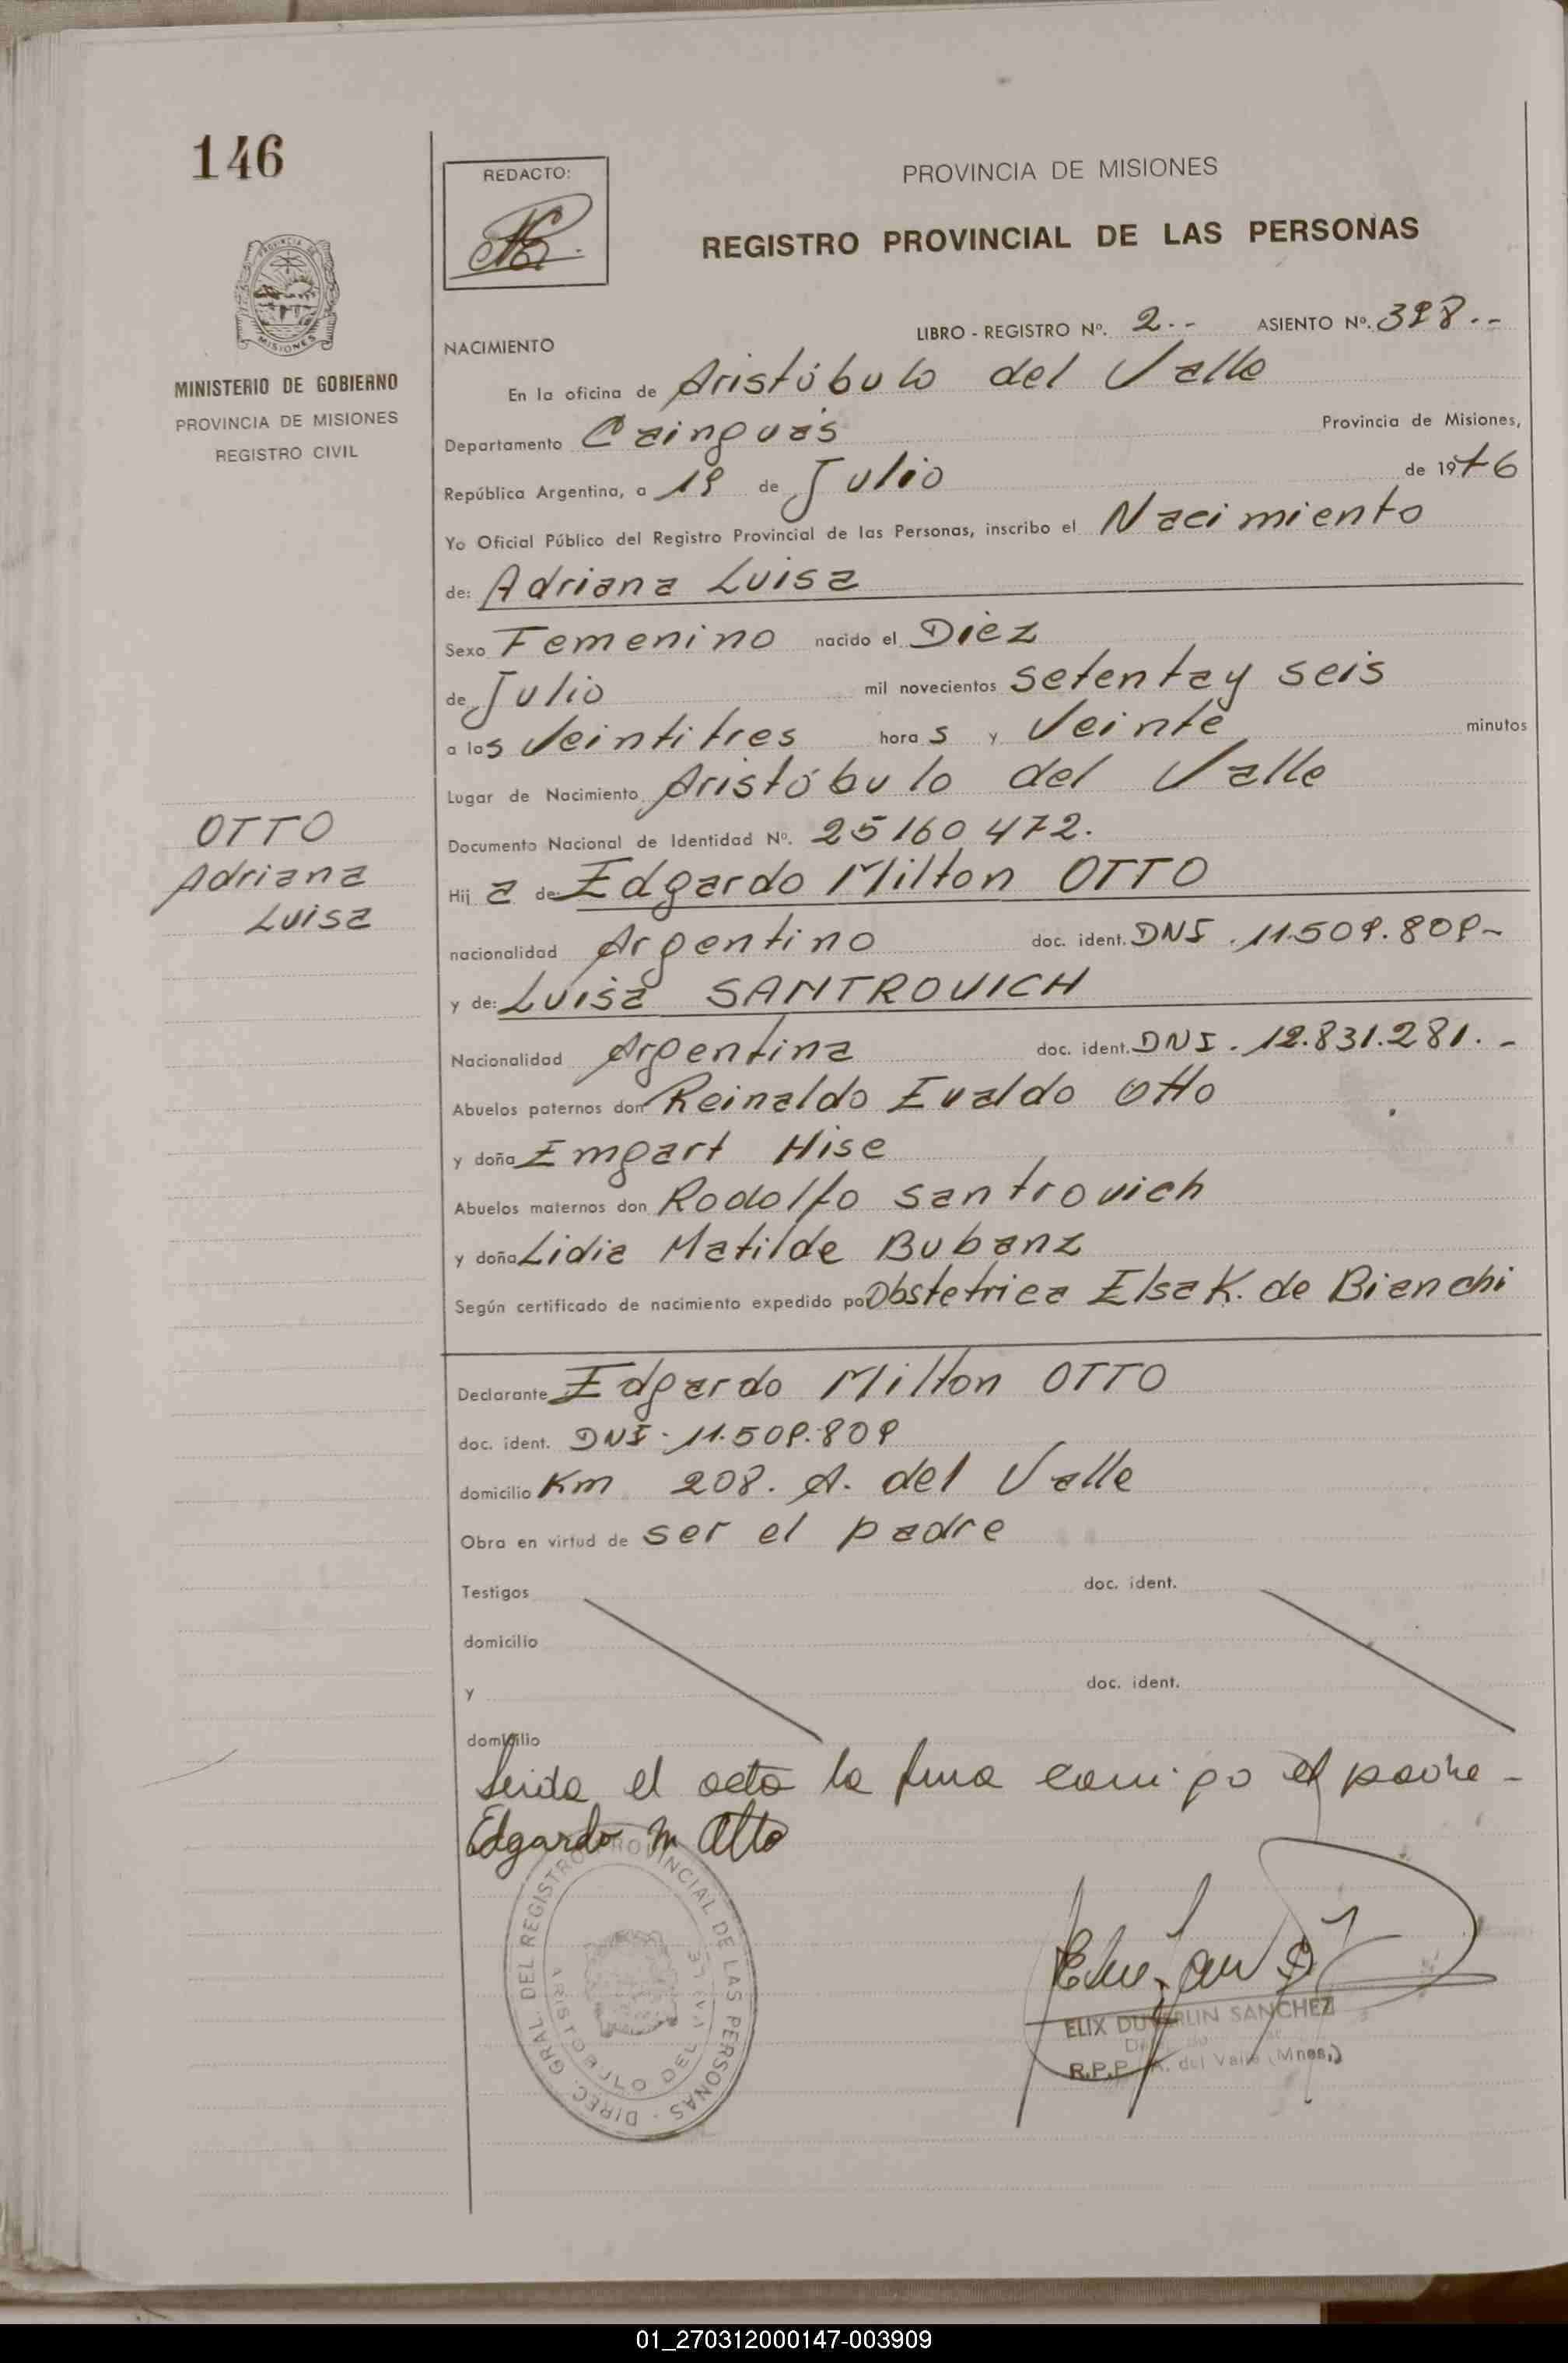 146
REDACTO:
PROVINCIA DE MISIONES
REGISTRO PROVINCIAL DE LAS PERSONAS
MISIONES
MINISTERIO DE GOBIERNO
PROVINCIA DE MISIONES
REGISTRO CIVIL
LIBRO - REGISTRO Nº. 2.-- ASIENTO Nº. 398.--
NACIMIENTO
En la oficina de Aristóbulo del Valle
Departamento Cainguás Provincia de Misiones,
República Argentina, a 19 de Julio de 1976
Yo Oficial Público del Registro Provincial de las Personas, inscribo el Nacimiento
de: Adriana Luisa
Sexo Femenino nacido el Diez
de Julio mil novecientos setenta y seis
a las veintitres horas y Veinte minutos
Lugar de Nacimiento Aristóbulo del Valle
Documento Nacional de Identidad Nº. 25160472.
OTTO
Adriana
Luisa
Hija de Edgardo Milton OTTO
nacionalidad Argentino doc. ident. DNI. 11.509.809-
y de: Luisa SANTROVICH
Nacionalidad Argentina doc. ident. DNI. 12.831.281.-
Abuelos paternos don Reinaldo Evaldo Otto
y doña Emgart Hise
Abuelos maternos don Rodolfo Santrovich
y doña Lidia Matilde Bubanz
Según certificado de nacimiento expedido por Obstetrica Elsa K. de Bianchi
Declarante Edgardo Milton OTTO
doc. ident. DNI. 11.509.809
domicilio Km 208. A. del Valle
Obra en virtud de ser el padre
Testigos doc. ident.
domicilio
y doc. ident.
domicilio
Leida el acta la firma conmigo el padre -
Edgardo M Otto
DIREC. GRAL. DEL REGISTRO PROVINCIAL DE LAS PERSONAS
ARISTOBULO DEL VALLE
ELIX DUVERLIN SANCHEZ
R.P.P. A. del Valle (Mnes.)
01_270312000147-003909